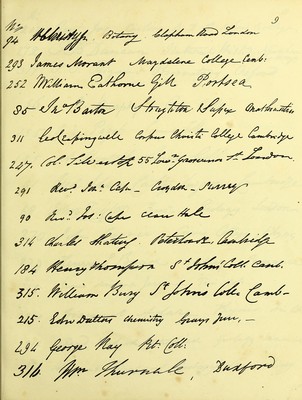 9
No
94 Botany Clapham Road London
293 James Morant Magdalene College Camb:
252 William Cathorne Gill Portsea
85 Jno Barton Stoughton Sussex
311 Geo Leapingwell Corpus Christi College Cambridge
227. Col. 55 Lowr Grosvenor St. London
291 Revd. Jas. Croydon Surrey
90 Revd. Jos: Hale
314 Charles Peterhouse, Cambridge
184 Henry Thompson St John's Coll. Camb.
315. William Bury St John's Coll. Camb-
215. Edwr Dutton chemistry Grays Inn, -
294 George Kay Pet. Coll:
316 Wm Thurnall, Duxford